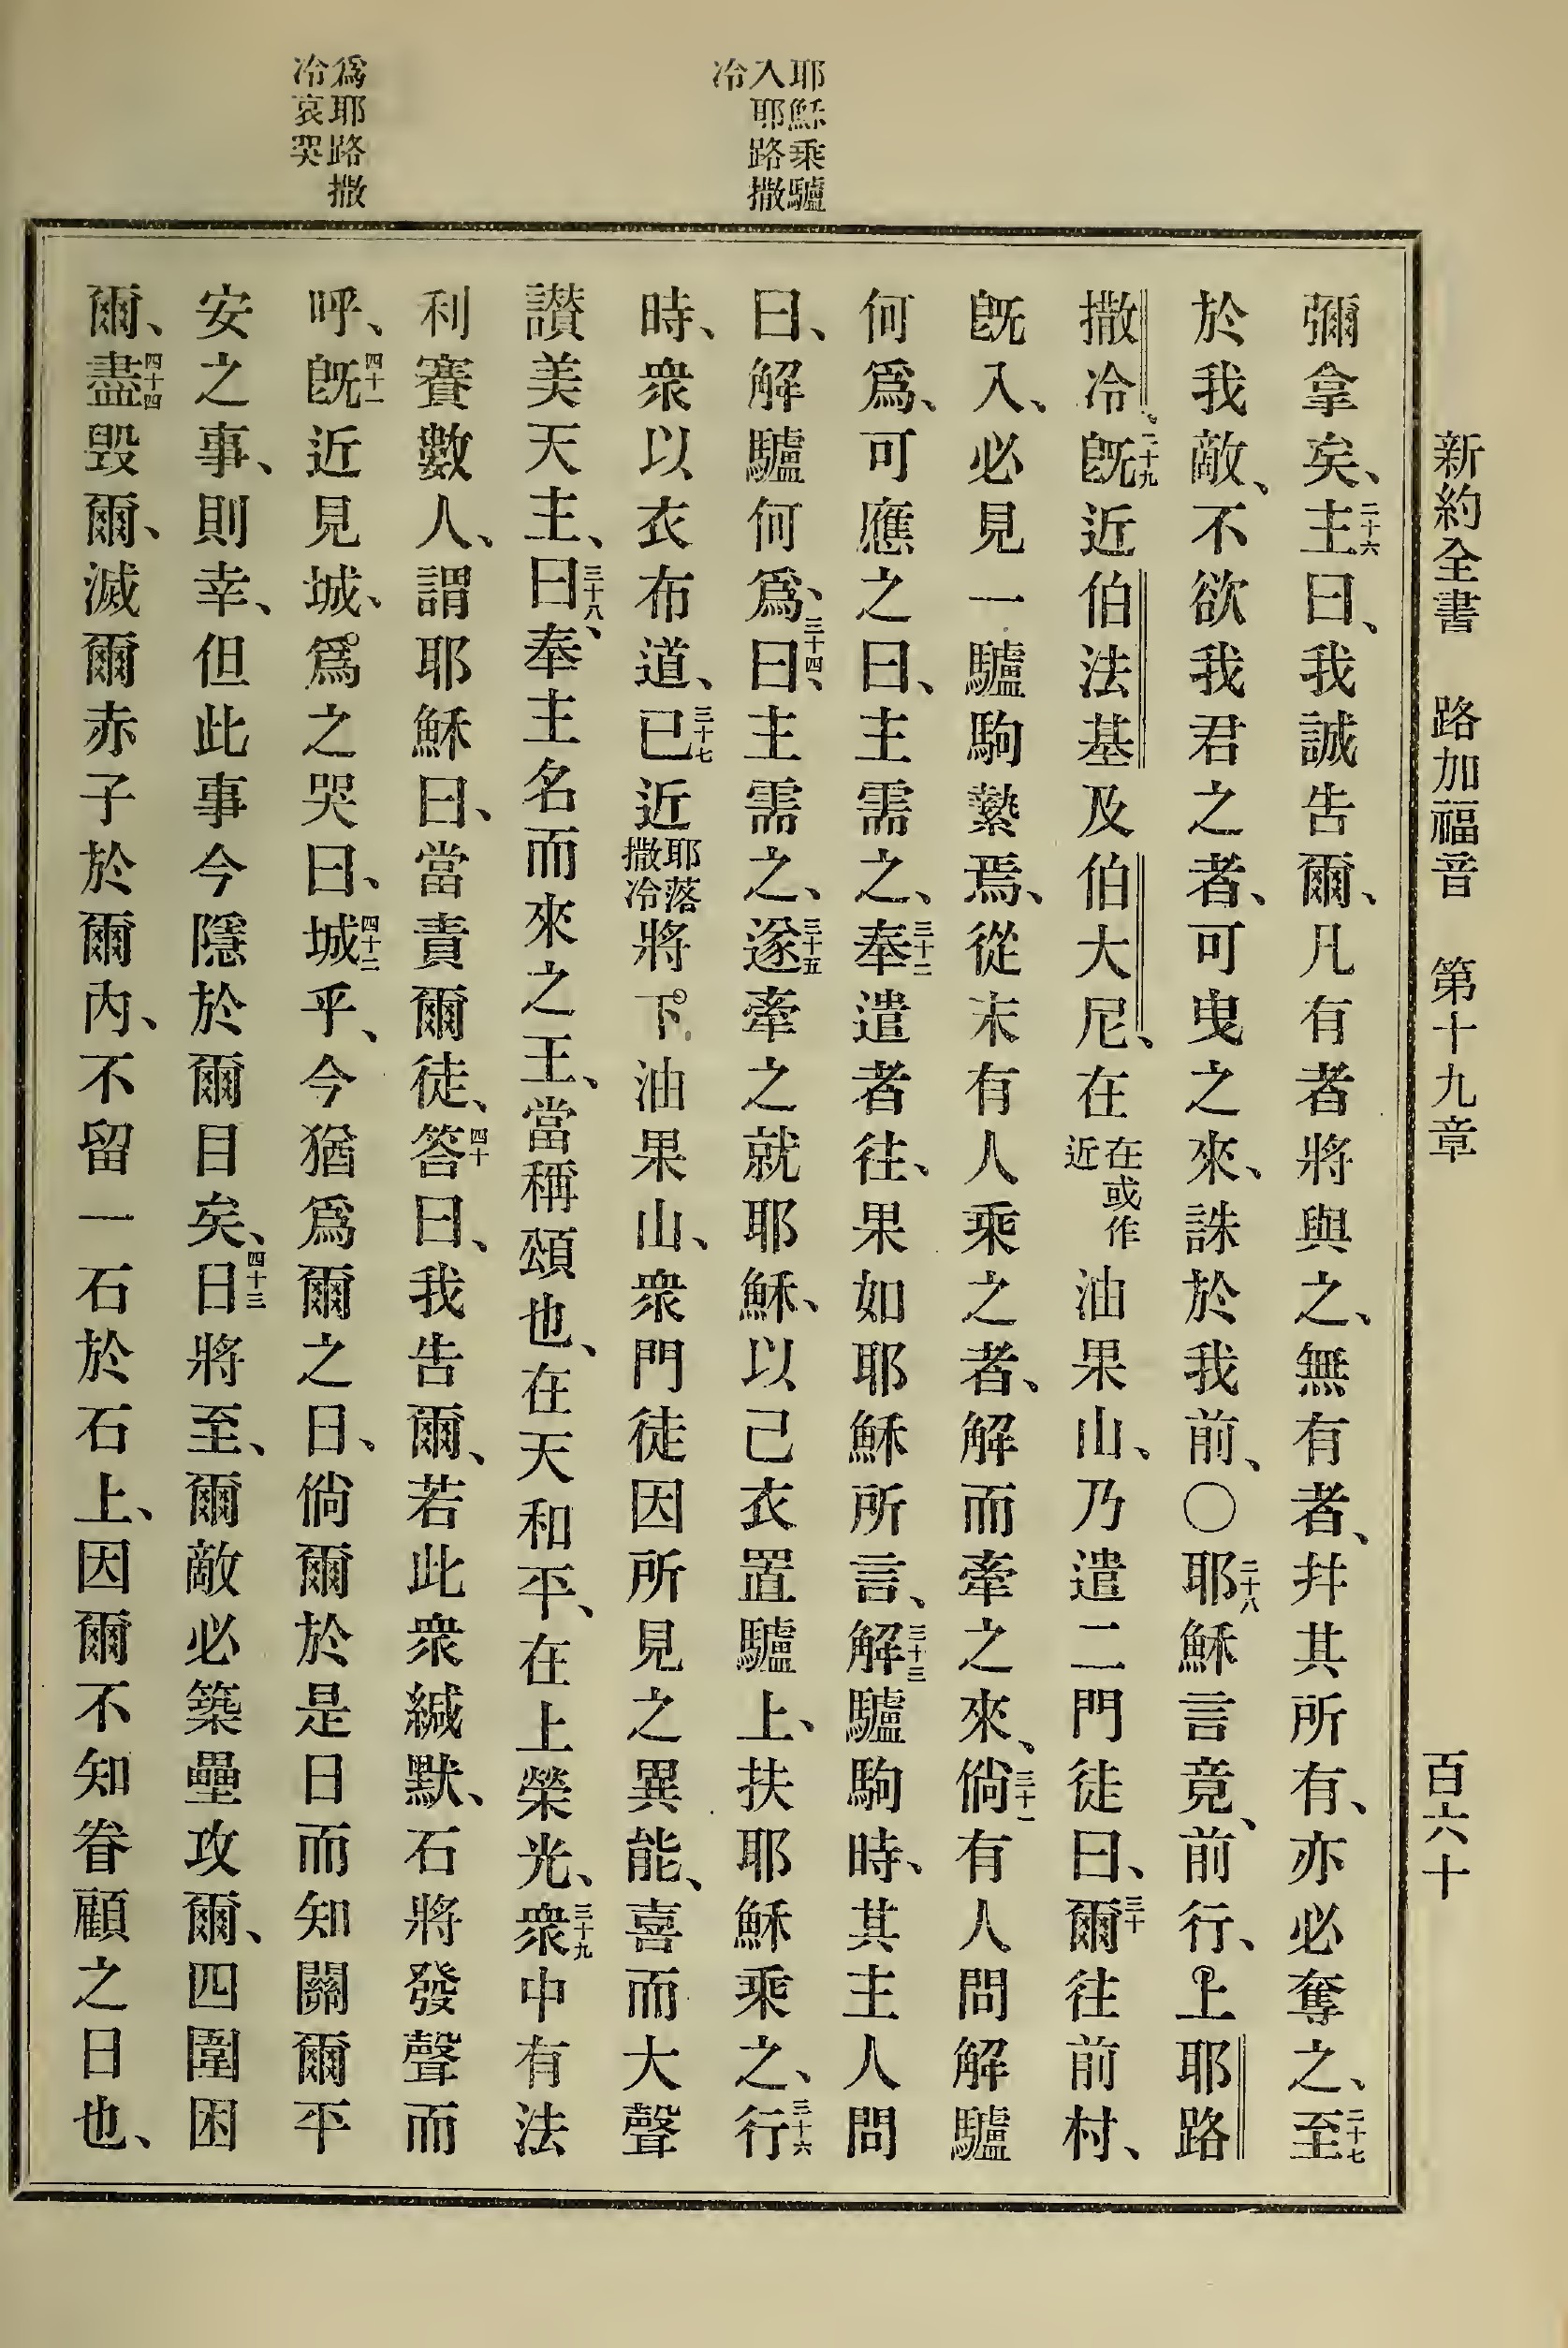 新約全書 路加福音 第十九章 百六十
耶穌乘驢
入耶路撒
冷
爲耶路撒
冷哀哭
彌拿矣、二十六主曰、我誠告爾、凡有者將與之、無有者、幷其所有、亦必奪之、二十七至
於我敵、不欲我君之者、可曳之來、誅於我前、〇二十八耶穌言竟、前行、上耶路
撒冷、二十九旣近伯法基及伯大尼、在在或作近油果山、乃遣二門徒曰、三十爾往前村、
旣入、必見一驢駒縶焉、從未有人乘之者、解而牽之來、三十一倘有人問解驢
何爲、可應之曰、主需之、三十二奉遣者往、果如耶穌所言、三十三解驢駒時、其主人問
曰、解驢何爲、三十四曰、主需之、三十五遂牽之就耶穌、以己衣置驢上、扶耶穌乘之、三十六行
時、衆以衣布道、三十七已近耶落撒冷將下油果山、衆門徒因所見之異能、喜而大聲
讚美天主、三十八曰、奉主名而來之王、當稱頌也、在天和平、在上榮光、三十九衆中有法
利賽數人、謂耶穌曰、當責爾徒、四十答曰、我告爾、若此衆緘默、石將發聲而
呼、四十一旣近見城、爲之哭曰、四十二城乎、今猶爲爾之日、倘爾於是日而知關爾平
安之事、則幸、但此事今隱於爾目矣、四十三日將至、爾敵必築壘攻爾、四圍困
爾、四十四盡毀爾、滅爾赤子於爾內、不留一石於石上、因爾不知眷顧之日也、